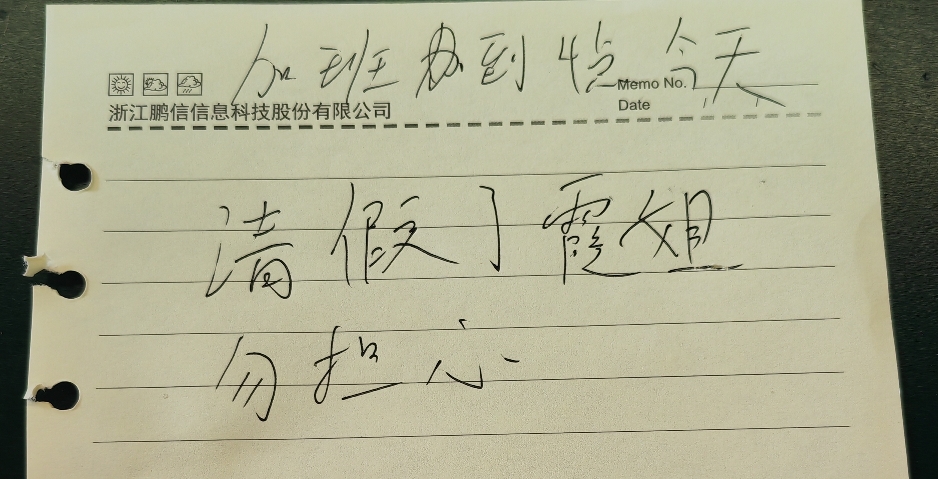 加班办到4点今天
Memo No.
浙江鹏信信息科技股份有限公司
Date
请假了霞姐
勿担心